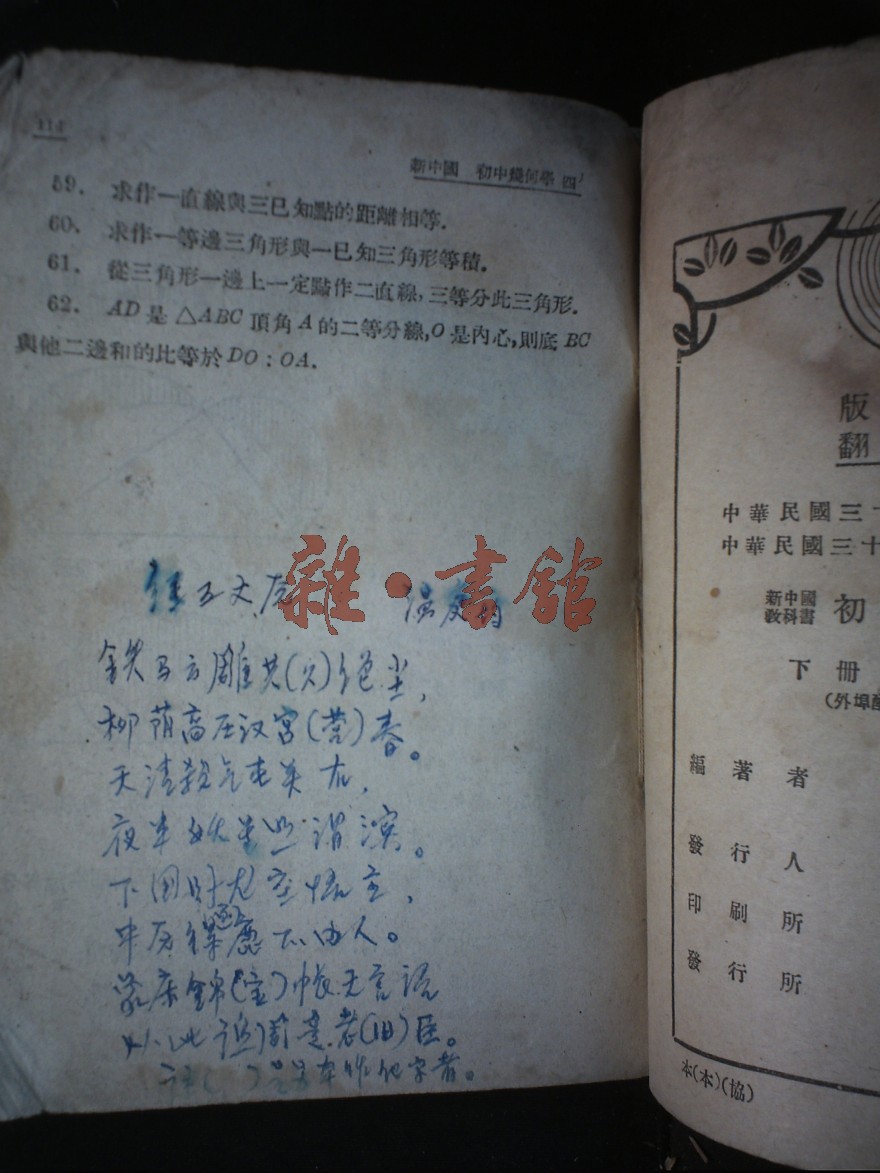 114
新中國 初中幾何學 四
59. 求作一直線與三已知點的距離相等.
60. 求作一等邊三角形與一已知三角形等積.
61. 從三角形一邊上一定點作二直線,三等分此三角形.
62. AD 是 △ABC 頂角 A 的二等分線,O 是內心,則底 BC
與他二邊和的比等於 DO : OA.
雜·書館
经五丈原 温庭筠
铁马云雕共(久)绝尘,
柳荫高压汉宫(营)春。
天清杀气屯关右,
夜半妖星照渭滨。
下国卧龙空悟主,
中原逐鹿不由人。
象床锦(宝)帐无言语
从此谯周是老(旧)臣。
注( )是另本作他字者。
版
翻
中華民國三十
中華民國三十
新中國
教科書 初
下冊
(外埠酌
編著者
發行人
印刷所
發行所
本(本)(協)